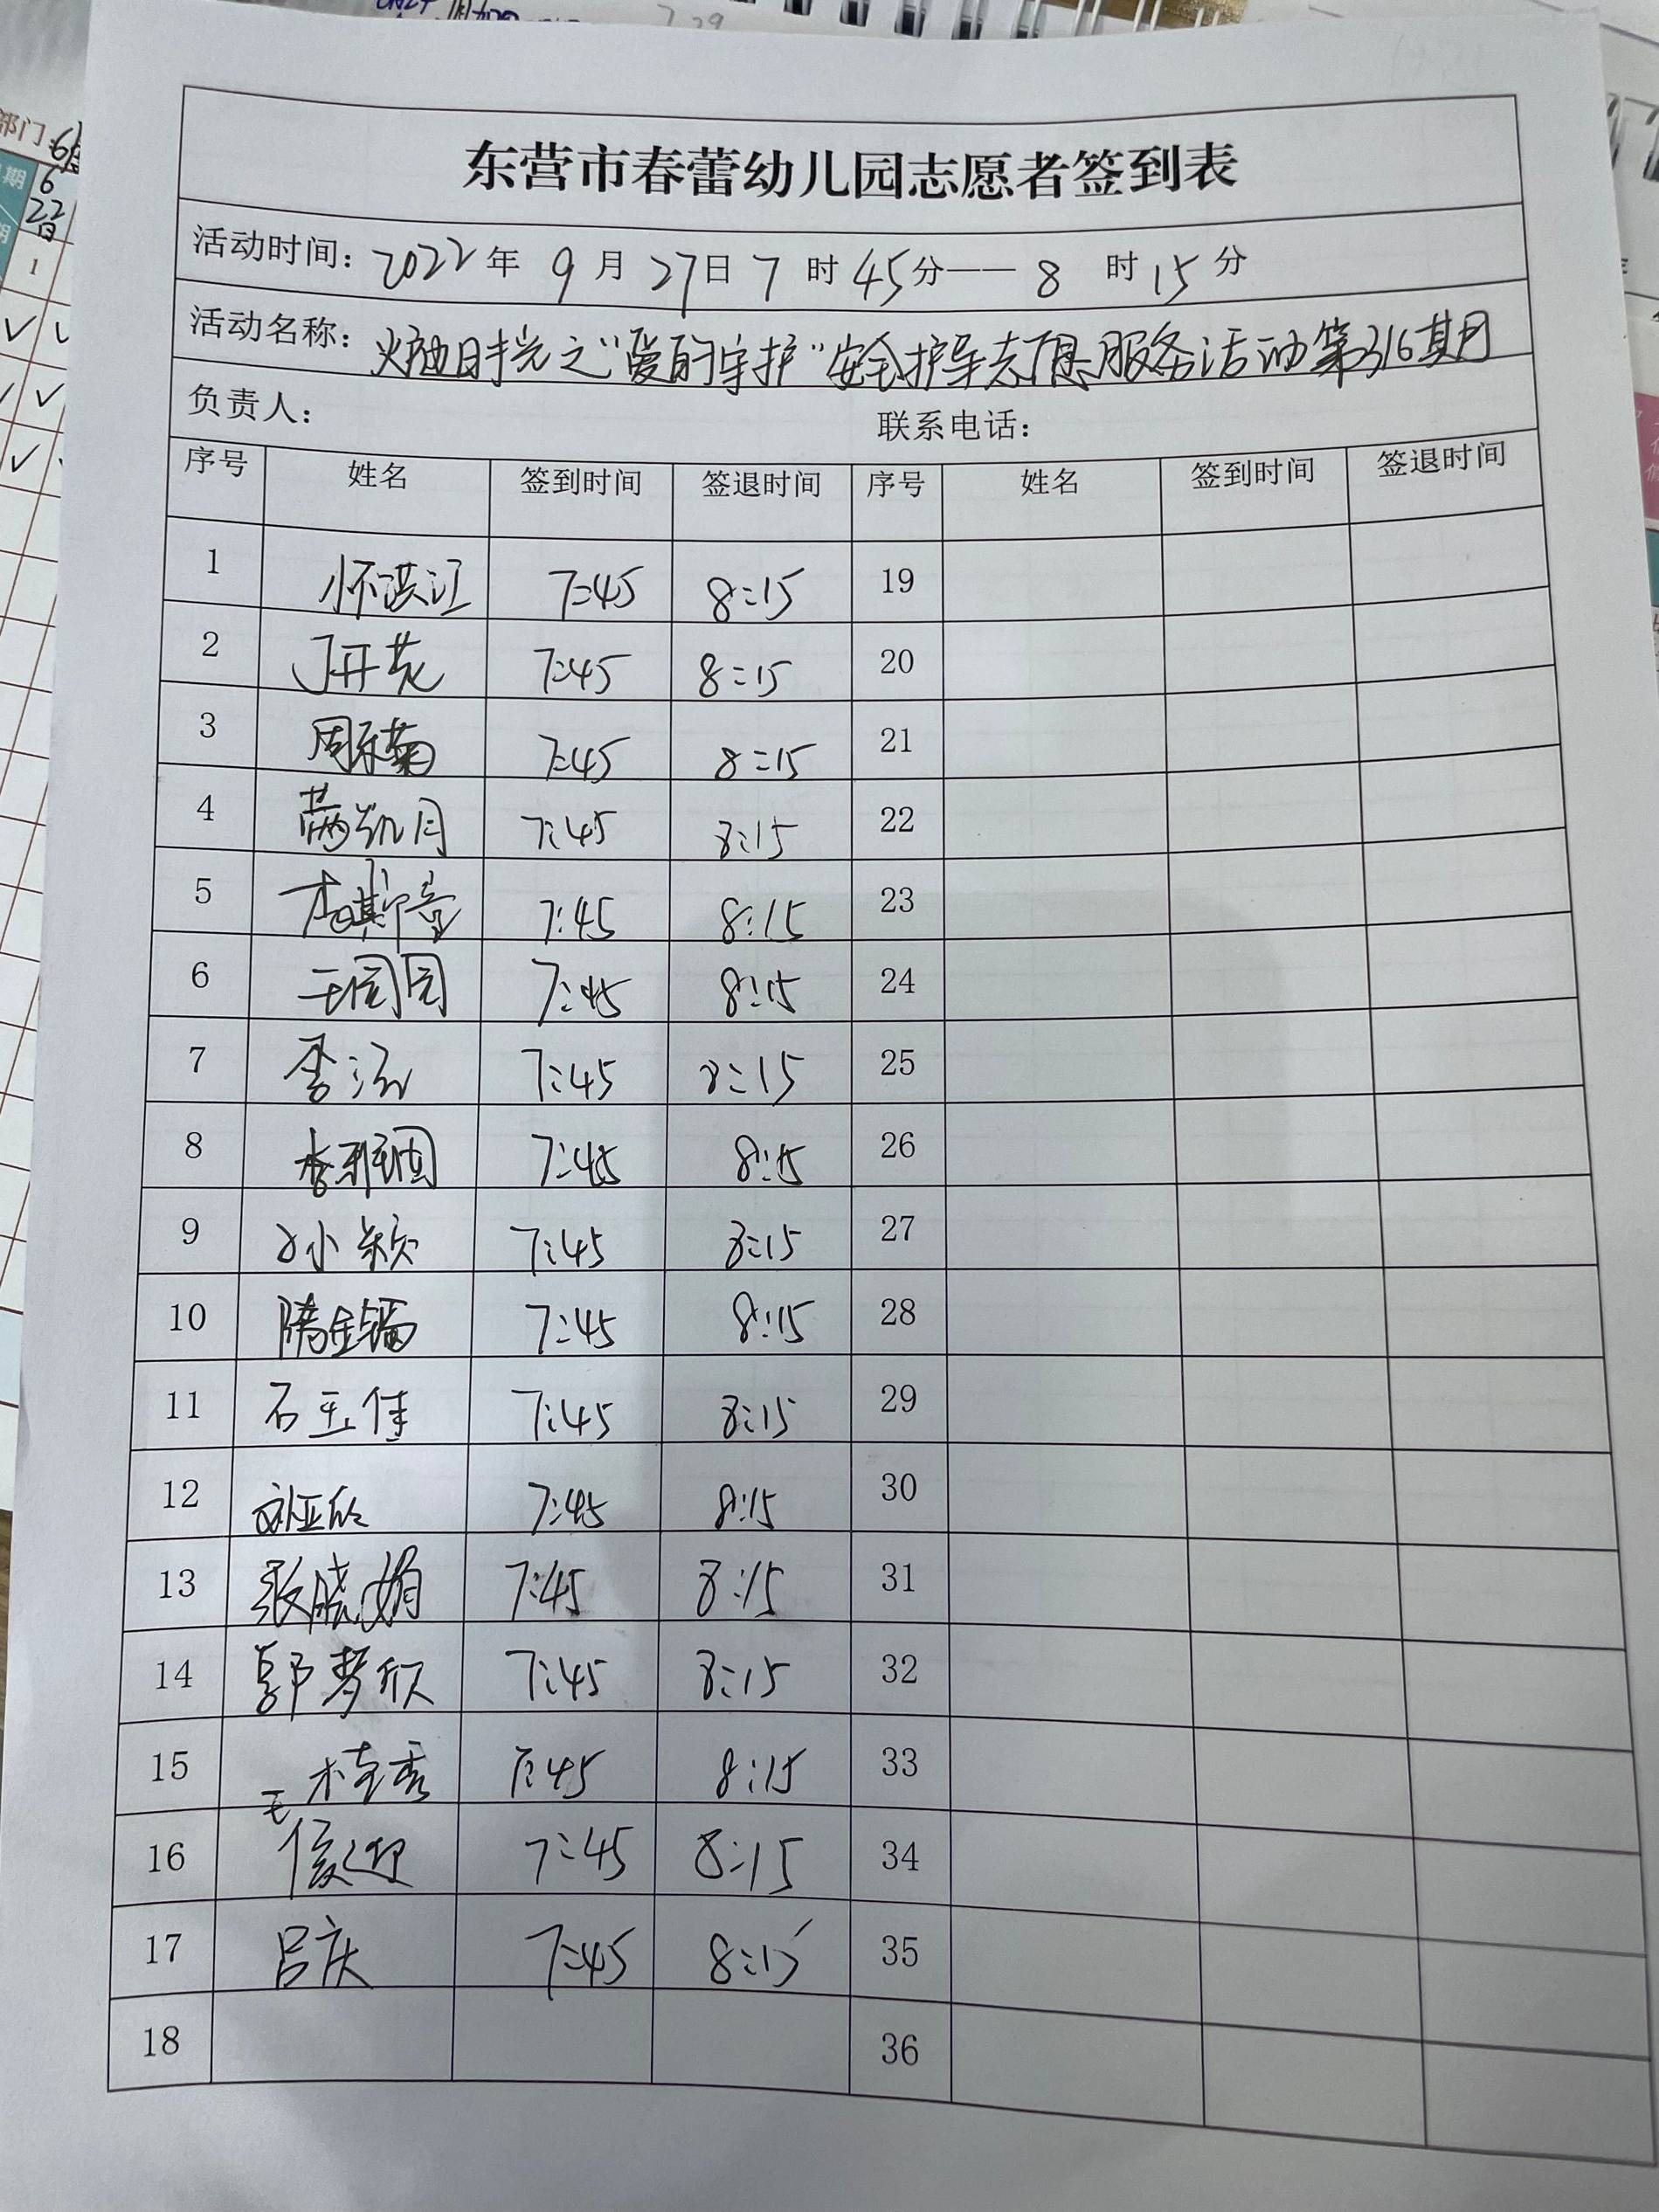 东营市春蕾幼儿园志愿者签到表
活动时间：2022年 9月 27日 7时 45分——8时 15分
活动名称：时光之“爱的守护”安全护导志愿服务活动第316期
负责人： 联系电话：
序号 姓名 签到时间 签退时间 序号 姓名 签到时间 签退时间
1 怀洪江 7:45 8:15 19
2 7:45 8:15 20
3 周乐菊 7:45 8:15 21
4 蔺凯月 7:45 8:15 22
5 7:45 8:15 23
6 王园园 7:45 8:15 24
7 李 7:45 8:15 25
8 李雅 7:45 8:15 26
9 小颖 7:45 8:15 27
10 隋金 7:45 8:15 28
11 石玉佳 7:45 8:15 29
12 刘亚欣 7:45 8:15 30
13 张晓娟 7:45 8:15 31
14 郭梦欣 7:45 8:15 32
15 王桂秀 7:45 8:15 33
16 侯迎 7:45 8:15 34
17 吕庆 7:45 8:15 35
18 36